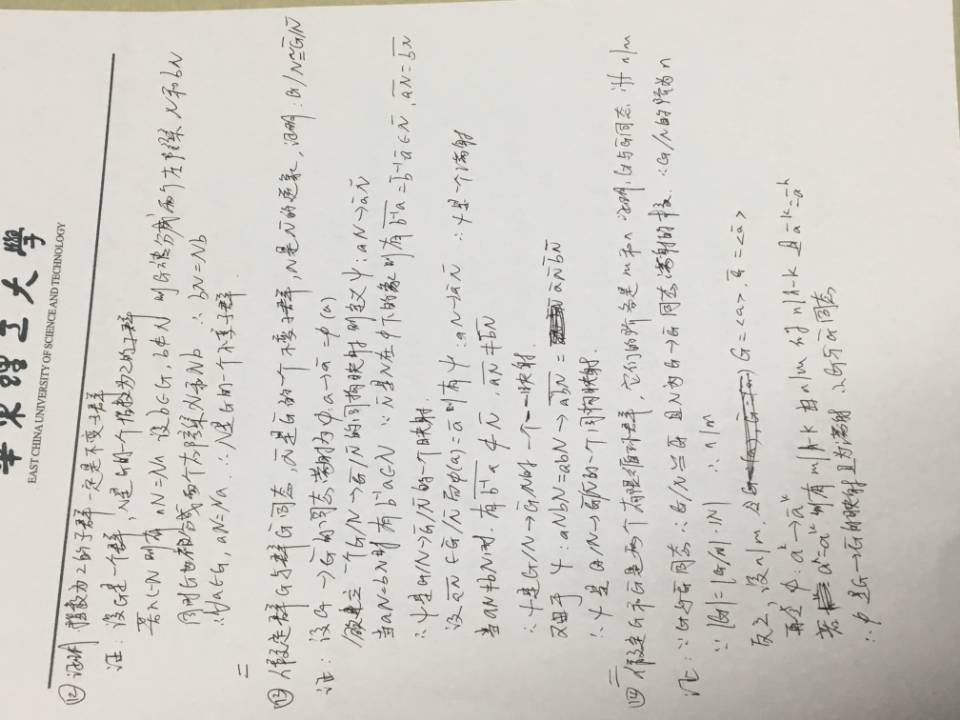 華東理工大學
EAST CHINA UNIVERSITY OF SCIENCE AND TECHNOLOGY
⑫ 证明 指数为2的子群一定是不变子群
证：设G是一个群，N是G的一个指数为2的子群
若n∈N 则有 nN=Nn 设b∈G, b∉N 则G被分成两个左陪集 N和bN
同时G也被分成两个右陪集N和Nb ∴ bN=Nb
∴∀a∈G, aN=Na ∴N是G的一个不变子群
⑬ 假定群G与群G̅同态，N̅是G̅的一个不变子群，N是N̅的逆象，证明：G/N≅G̅/N̅
证：设G→G̅的同态满射为ϕ:a→a̅=ϕ(a)
欲建立一个G/N→G̅/N̅的同构映射 则定义ψ:aN→a̅N̅
当aN=bN时 有b⁻¹a∈N ∵N̅是N在ϕ下的象 则有 b̅⁻̅¹̅a̅=b̅⁻¹a̅∈N̅, a̅N̅=b̅N̅
∴ψ是G/N→G̅/N̅的一个映射.
设a̅N̅∈G̅/N̅ 而ϕ(a)=a̅ 则有ψ:aN→a̅N̅ ∴ψ是一个满射
当aN≠bN时. 有b̅⁻̅¹̅a̅∉N̅, a̅N̅≠b̅N̅
∴ψ是G/N→G̅/N̅的一个一一映射.
又由于 ψ:aNbN=abN→a̅b̅N̅= a̅N̅b̅N̅
∴ψ是G/N→G̅/N̅的一个同构映射.
⑭ 假定G和G̅是两个有限循环群，它们的阶各是m和n 证明:G与G̅同态 iff n|m
证：∵G与G̅同态 ∴G/N≅G̅ 且N为G→G̅同态满射的核. ∴G/N的阶为n
∵ |G|=|G/N|·|N| ∴n|m
反之，设n|m. 且 G=<a>, G̅=<a̅>
再定 ϕ:aᵏ→a̅ᵏ
若 aʰ=aᵏ 则有m|h-k 由n|m 得 n|h-k 且a̅ᵏ=a̅ʰ
∴ϕ是G→G̅的映射且为满射 ∴G与G̅同态